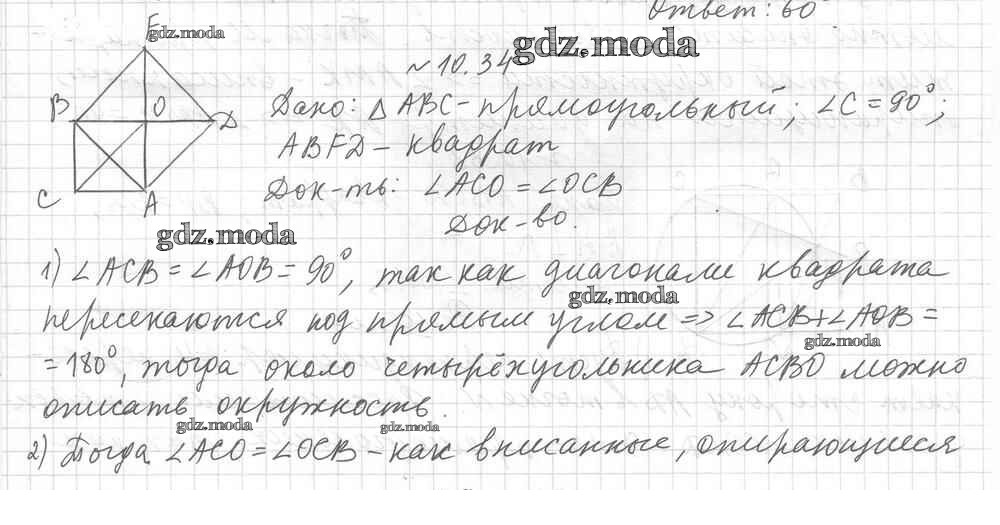 Ответ: 60
gdz.moda
F
gdz.moda
№ 10.34
B
O
D
C
A
Дано: △ ABC - прямоугольный; ∠C = 90°;
ABFD - квадрат
Док-ть: ∠ACO = ∠OCB
Док-во.
gdz.moda
1) ∠ACB = ∠AOB = 90°, так как диагонали квадрата
gdz.moda
пересекаются под прямым углом => ∠ACB + ∠AOB =
gdz.moda
= 180°, тогда около четырёхугольника ACBO можно
описать окружность.
gdz.moda
gdz.moda
2) Тогда ∠ACO = ∠OCB - как вписанные, опирающиеся